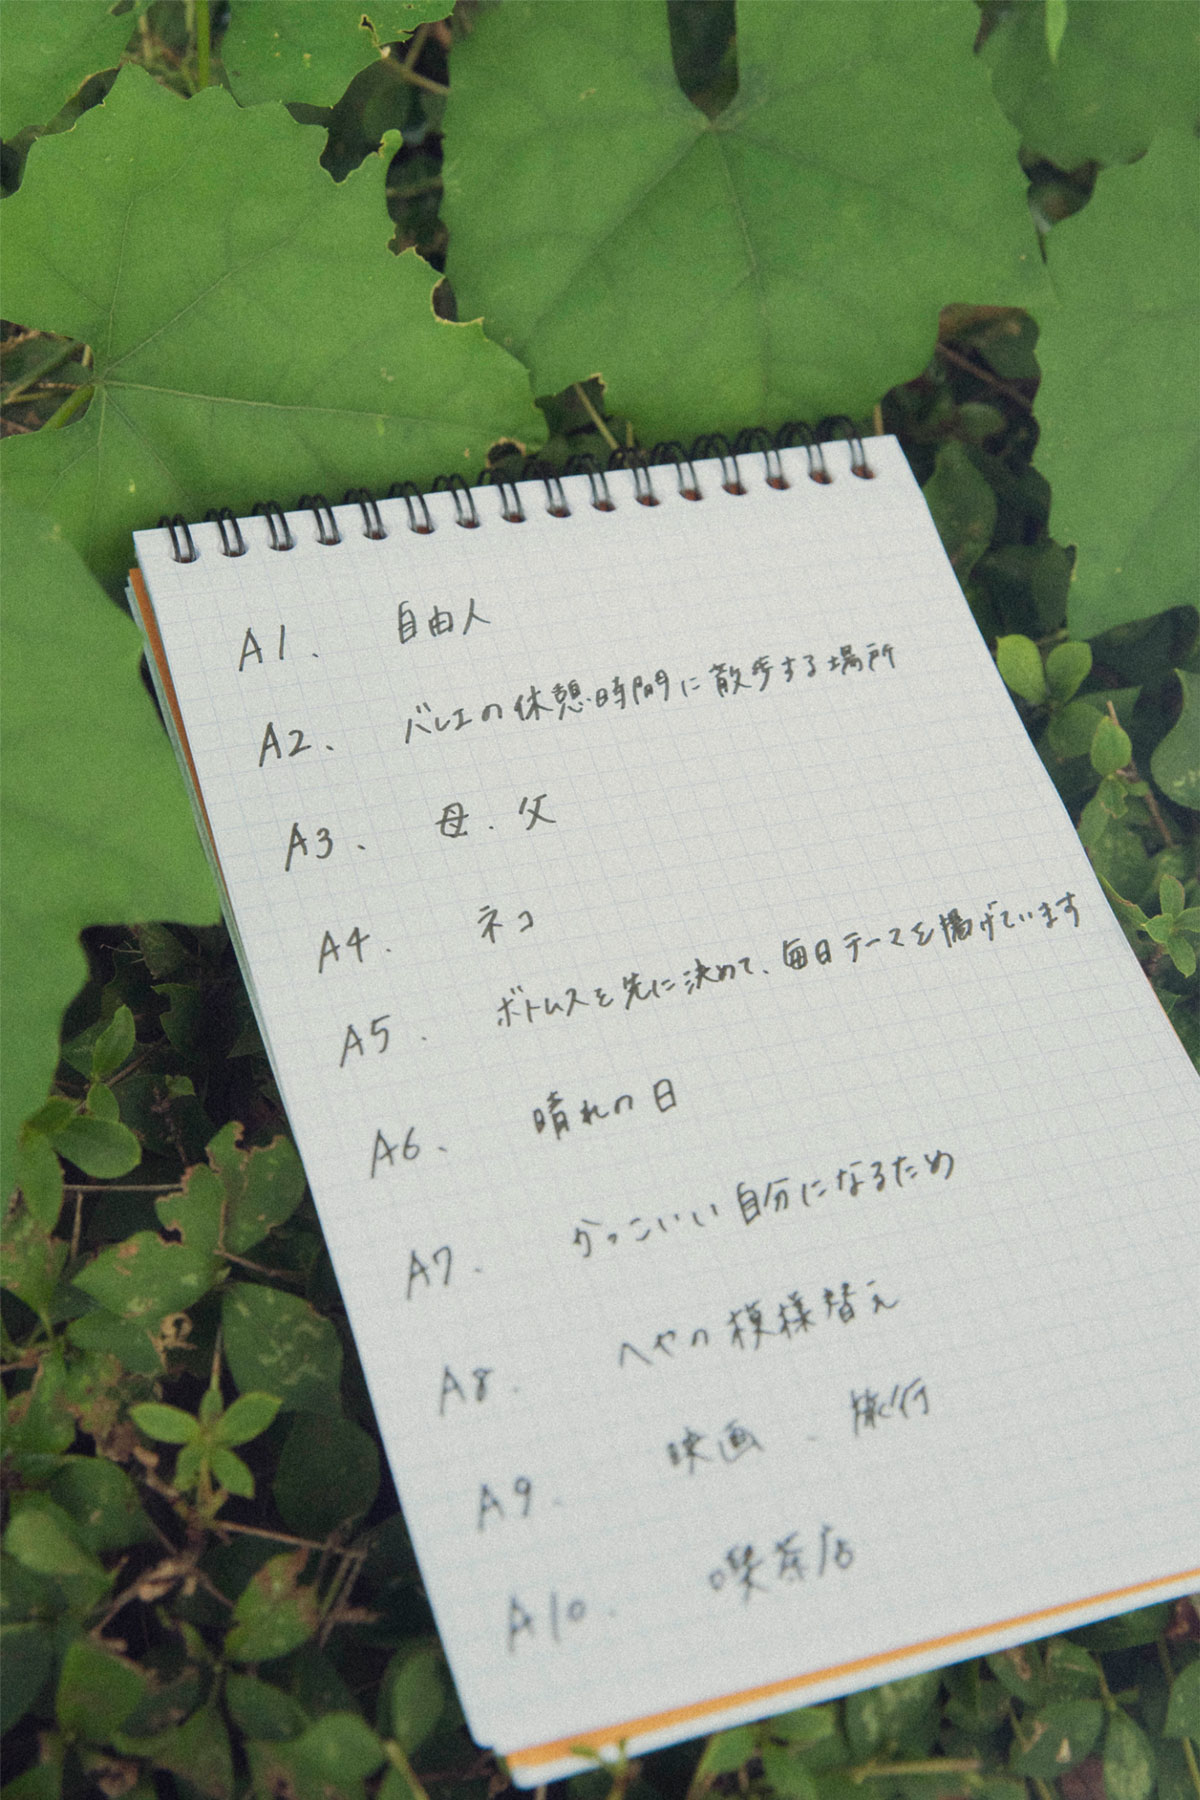 A1. 自由人
A2. バレエの休憩時間に散歩する場所
A3. 母.父
A4. ネコ
A5. ボトムスを先に決めて、毎日テーマを掲げています
A6. 晴れの日
A7. かっこいい自分になるため
A8. へやの模様替え
A9. 映画、旅行
A10. 喫茶店